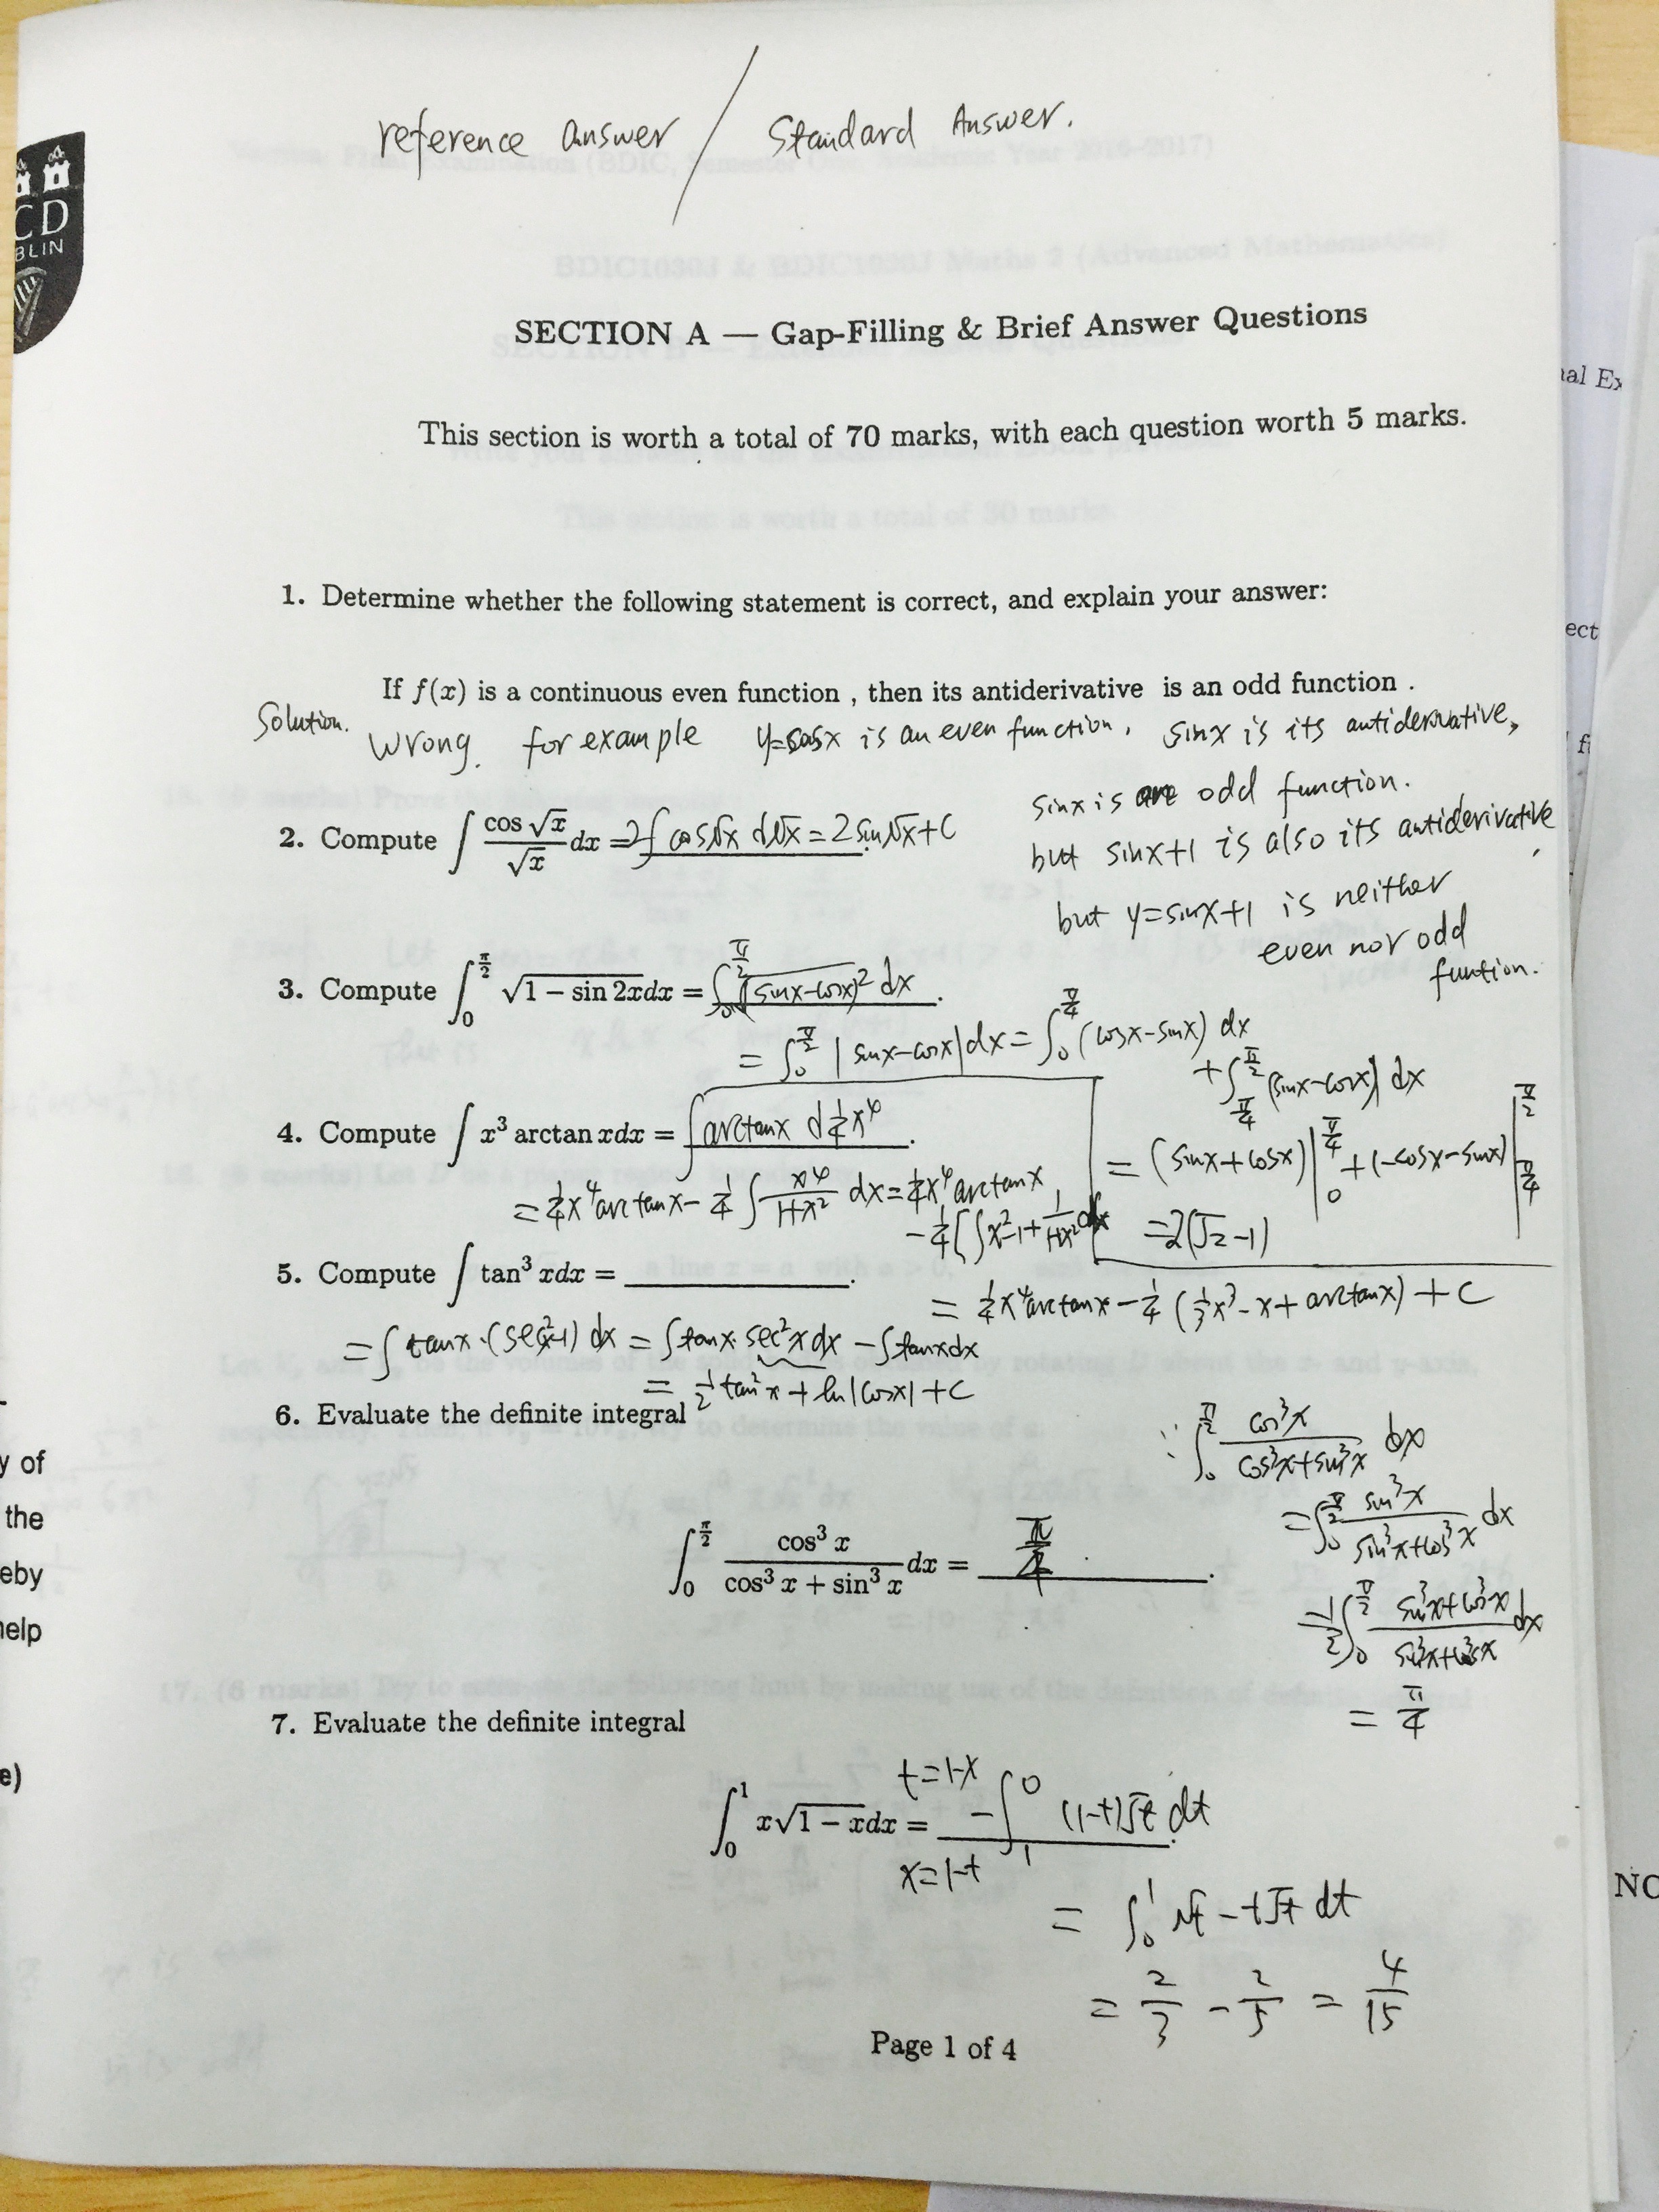 reference answer / Standard Answer.
CD
BLIN
SECTION A — Gap-Filling & Brief Answer Questions
This section is worth a total of 70 marks, with each question worth 5 marks.
1. Determine whether the following statement is correct, and explain your answer:
If f(x) is a continuous even function , then its antiderivative is an odd function .
Solution. Wrong. for example y=cosx is an even function. sinx is its antiderivative,
sinx is odd function.
but sinx+1 is also its antiderivative,
but y=sinx+1 is neither
even nor odd
funtion.
2. Compute ∫ cos √x / √x dx = 2∫ cos√x d√x = 2 sin√x + C
3. Compute ∫_0^{π/2} √(1 − sin 2x) dx = ∫_0^{π/2} √(sinx−cosx)² dx.
= ∫_0^{π/2} |sinx−cosx| dx = ∫_0^{π/4} (cosx−sinx) dx
+ ∫_{π/4}^{π/2} (sinx−cosx) dx
= (sinx+cosx) |_0^{π/4} + (−cosx−sinx) |_{π/4}^{π/2}
= 2(√2−1)
4. Compute ∫ x³ arctan x dx = ∫ arctanx d ¼x⁴.
= ¼x⁴ arctanx − ¼ ∫ x⁴/(1+x²) dx = ¼x⁴ arctanx
− ¼ [∫ x²−1+ 1/(1+x²) dx
= ¼x⁴ arctanx − ¼ (⅓x³ − x + arctanx) + C
5. Compute ∫ tan³ x dx = ____.
= ∫ tanx·(sec²x−1) dx = ∫ tanx·sec²x dx − ∫ tanx dx
= ½ tan²x + ln|cosx| + C
6. Evaluate the definite integral
∫_0^{π/2} cos³ x / (cos³ x + sin³ x) dx = π/4.
∵ ∫_0^{π/2} cos³x / (cos³x+sin³x) dx
= ∫_0^{π/2} sin³x / (sin³x+cos³x) dx
= ½ ∫_0^{π/2} (sin³x+cos³x) / (sin³x+cos³x) dx
= π/4
7. Evaluate the definite integral
t=1−x
∫_0^1 x√(1 − x) dx = −∫_1^0 (1−t)√t dt
x=1−t
= ∫_0^1 √t − t√t dt
= 2/3 − 2/5 = 4/15
Page 1 of 4
nal Ex
ect
y of
the
eby
help
e)
NO